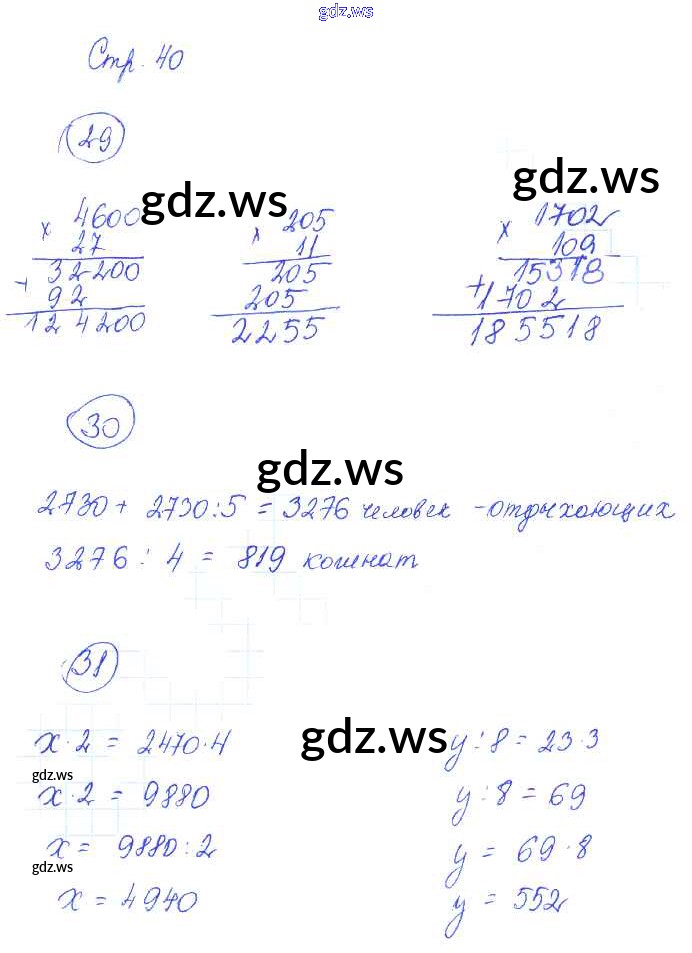 gdz.ws
Стр. 40
29
gdz.ws
gdz.ws
× 4600
27
+ 32200
92
124200
× 205
11
205
205
2255
× 1702
109
15318
+ 1702
185518
30
gdz.ws
2730 + 2730:5 = 3276 человек - отдыхающих
3276 : 4 = 819 комнат
31
gdz.ws
x·2 = 2470·4
gdz.ws
x·2 = 9880
x = 9880:2
gdz.ws
x = 4940
y:8 = 23·3
y:8 = 69
y = 69·8
y = 552